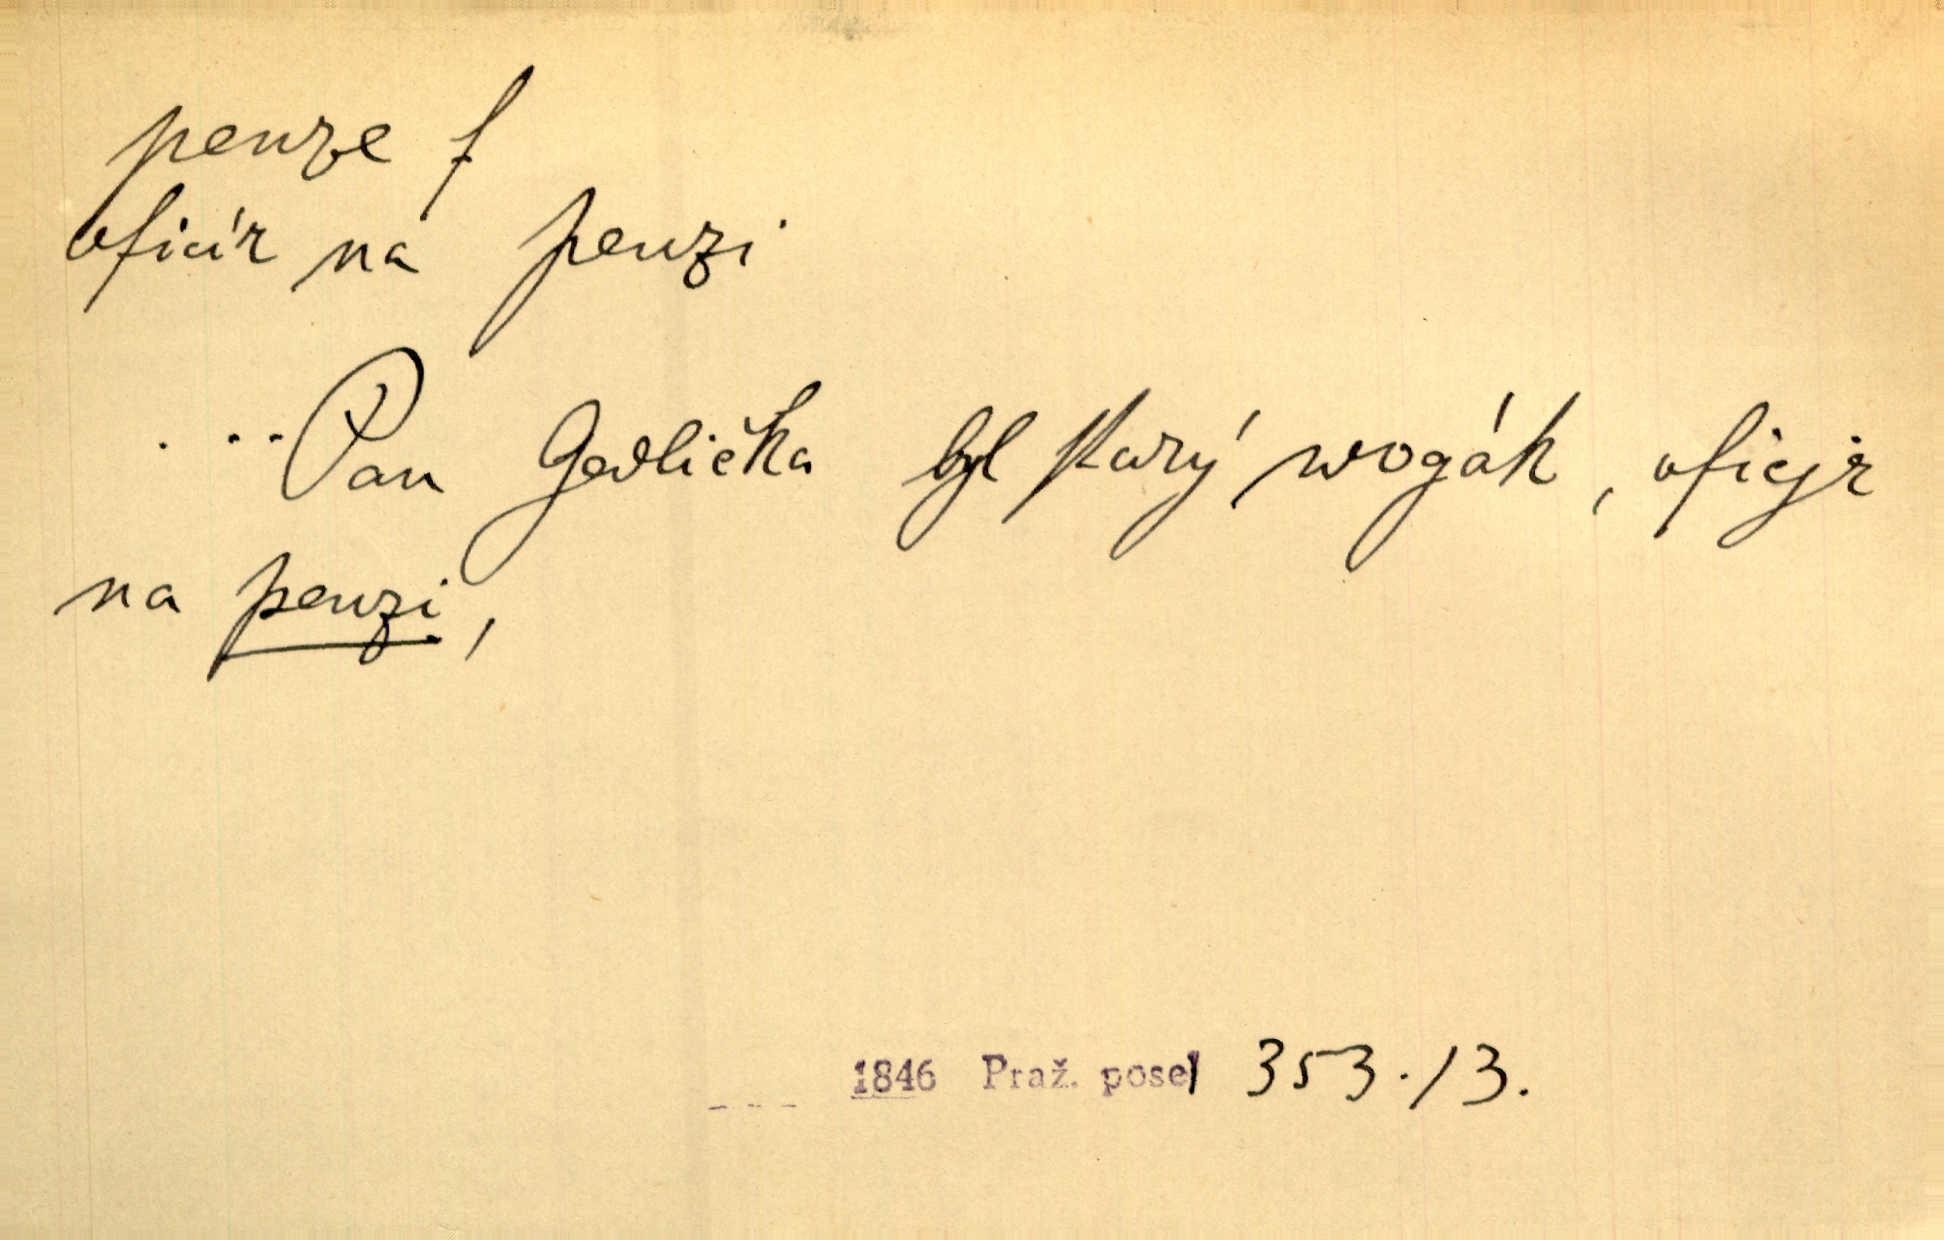 penze f
oficír na penzi
... Pan Gedlička byl starý wogák, oficjr
na penzi,
1846 Praž. posel 353./3.